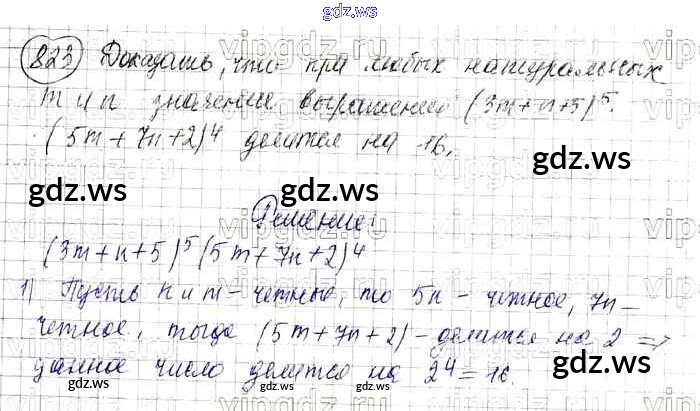 gdz.ws
823 Доказать, что при любых натуральных
m и n значение выражения (3m+n+5)^5 ·
· (5m+7n+2)^4 делится на 16.
gdz.ws gdz.ws gdz.ws
Решение:
(3m+n+5)^5 (5m+7n+2)^4
1) Пусть n и m - четные, то 5n - четное, 7n -
четное, тогда (5m+7n+2) - делится на 2 =>
данное число делится на 2^4 = 16.
gdz.ws gdz.ws gdz.ws
gdz.ws